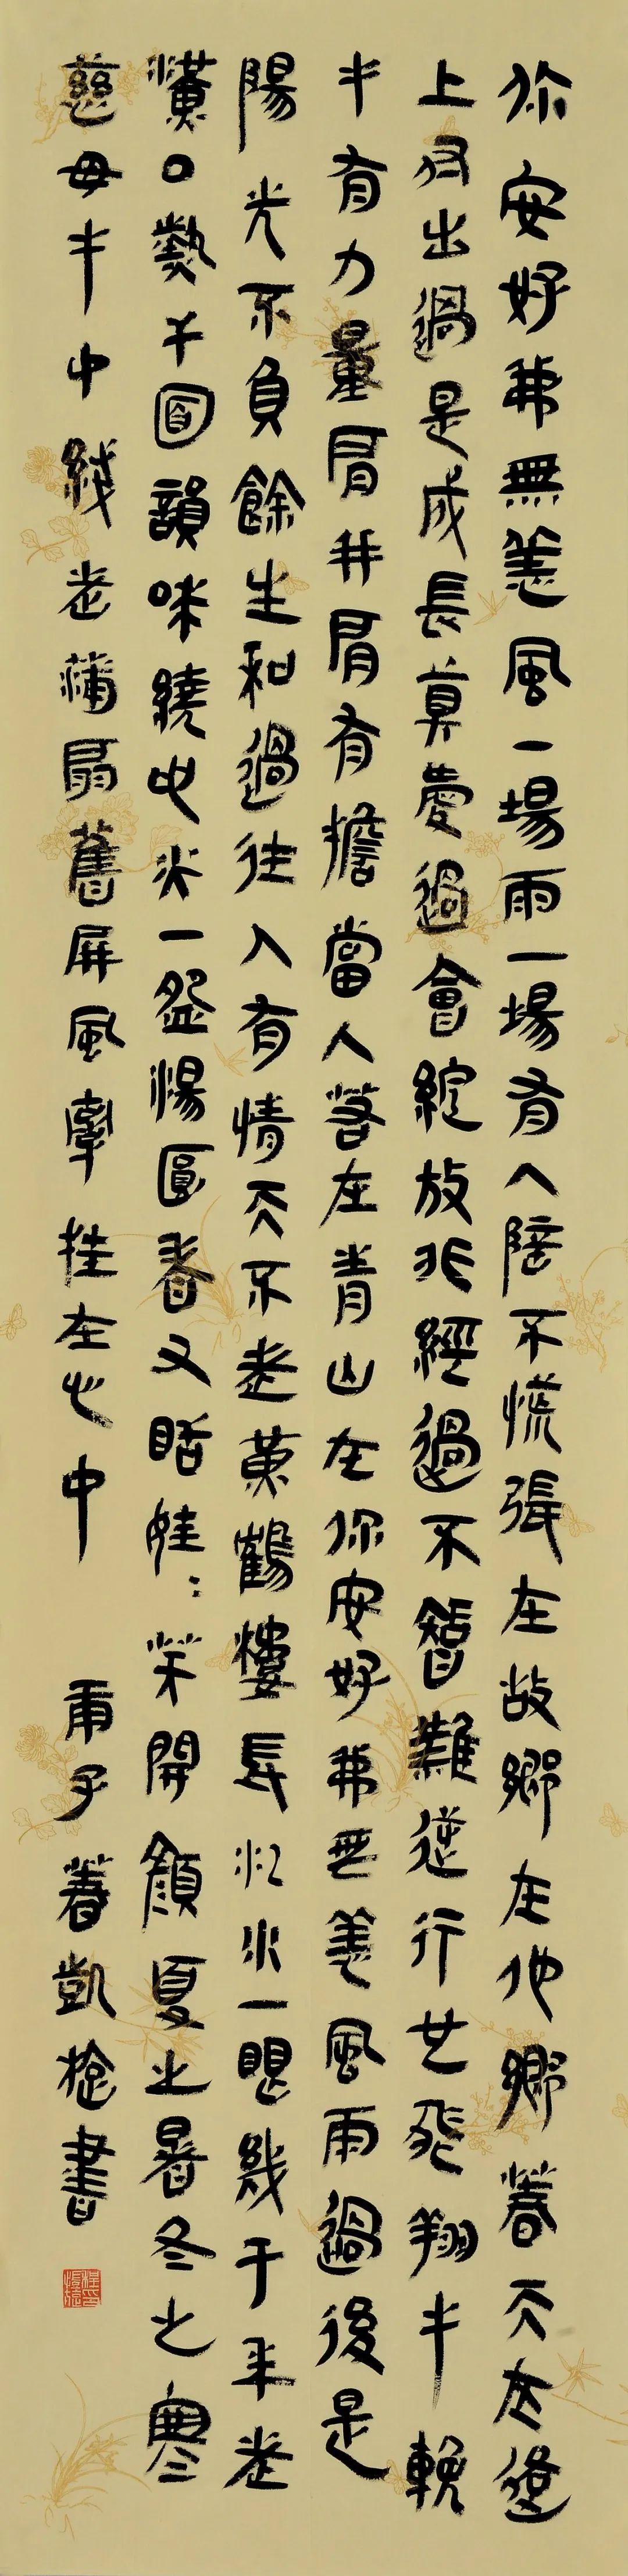 你安好弗無恙風一場雨一場有人陪不慌張在故鄉在他鄉春天在邊
上付出過是成長真愛過會綻放非經過不智難逆行世飛翔手輓
手有力量肩并肩有擔當人若在青山在你安好弗無恙風雨過後是
陽光不負餘生和過往人有情天不老黃鶴樓長江水一眼幾千年老
漢口熱干面韻味繞心尖一盌湯圓香又甜娃娃笑開顏夏之暑冬之寒
慈母手中綫老蒲扇舊屏風牽挂在心中 甬子春凱 書